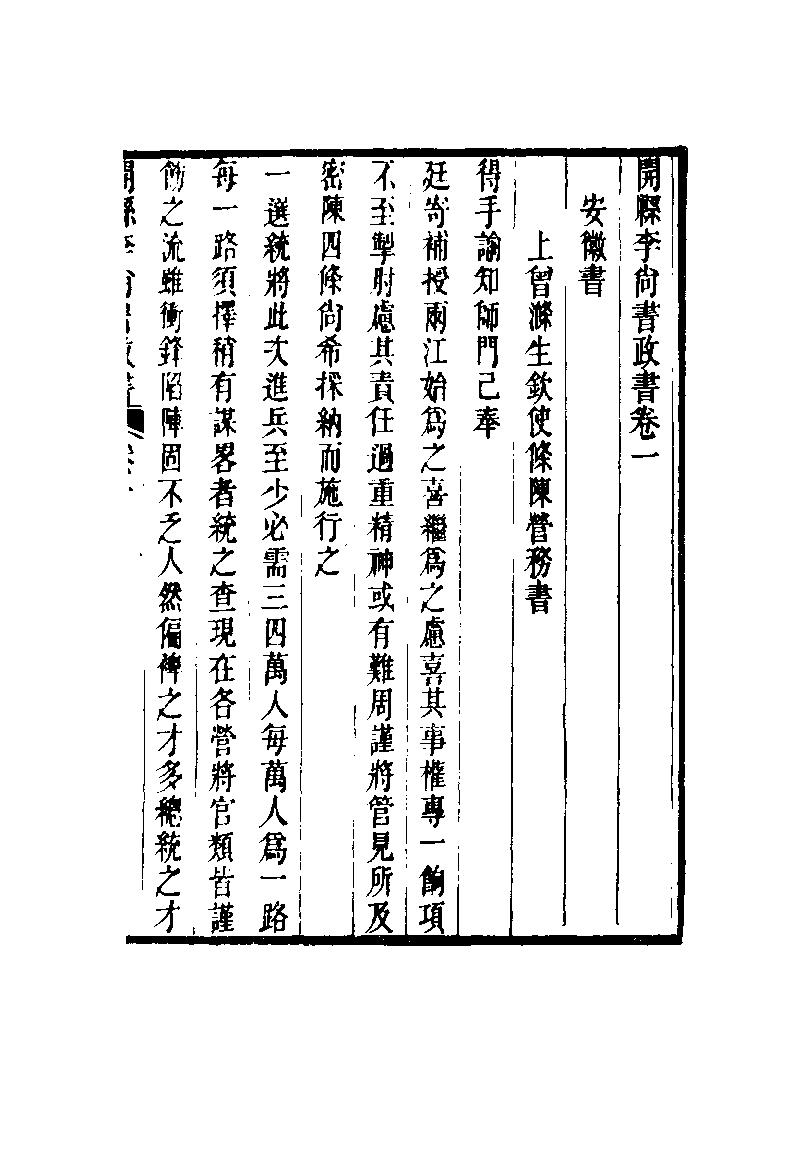 開縣李尚書政書卷一
安徽書
上曾滌生欽使條陳營務書
得手諭知師門已奉
廷寄補授兩江始爲之喜繼爲之慮喜其事權專一餉項
不至掣肘慮其責任過重精神或有難周謹將管見所及
密陳四條尙希採納而施行之
一選統將此次進兵至少必需三四萬人每萬人爲一路
每一路須擇稍有謀畧者統之查現在各營將官類皆謹
飭之流雖衝鋒陷陣固不乏人然偏裨之才多總統之才
開縣李尚書政書
卷一